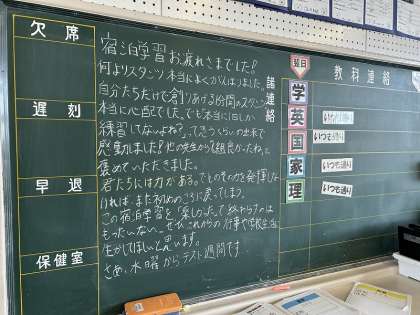 欠席
遅刻
早退
保健室
宿泊学習お疲れさまでした!
何よりスタンツ本当によくがんばりました。
自分たちだけで創りあげる
分間のスタンツ
本当に心配でした。でも本当に1日しか
練習してないよね?」ってさっくらいの出来で
感動しました!他の先生からも
良かったね。って
褒めていただきました。
君たちには力がある。でもその力を発揮しな
ければ、また初めのころに戻ってしまう。
この宿泊学習を「楽しかった」で終わらすのは
もったいない。ぜひこれからの行事や学校生活に
生かしてほしいと思います。
さあ、水曜からテスト週間です…
諸連絡
翌日
教科連絡
学
英 いつも通り
国 いつも通り
家 いつも通り
理 いつも通り